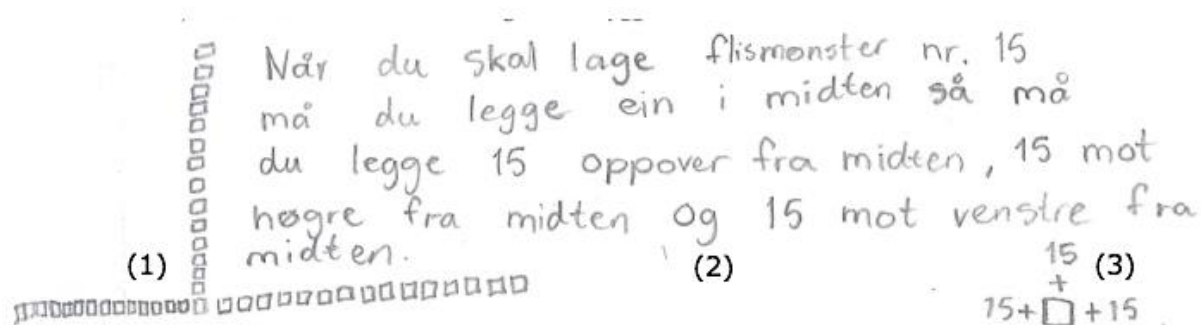 Når du skal lage flismonster nr. 15
må du legge ein i midten så må
du legge 15 oppover fra midten, 15 mot
høgre fra midten og 15 mot venstre fra
midten.
(1)
(2)
(3)
15
+
15+□+15